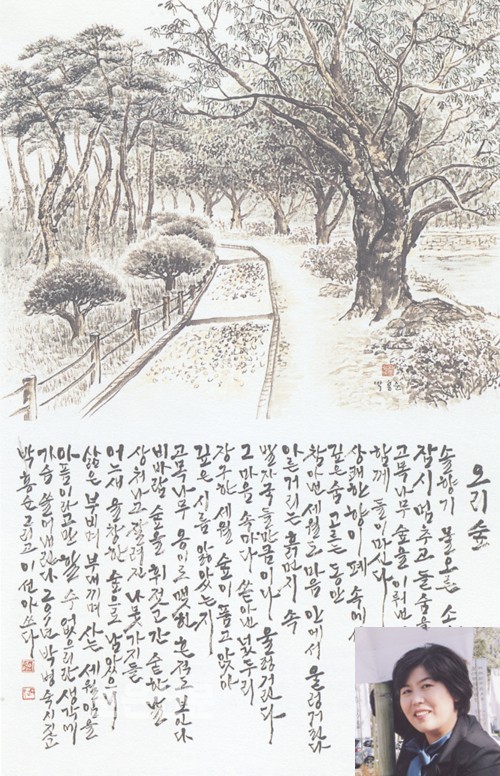 오리숲
솔향기 물오른
잠시 멈추고 들숨을
고목나무 숲을
함께 들이마신다
상쾌한 향이 폐 속에서
깊은 숨 고르는 동안
참아낸 세월로 마음 안에서 울렁거린다
아른거리는 흙먼지 속
발자국들만큼이나 울렁거린다
그 마음 속마다 쏟아낸 넋두리
장구한 세월 숲이 품고 앉아
깊은 시름 앓았는지
고목나무 옹이로 맺힌 흔적도 보인다
비바람 숲을 휘젓고 간 숱한 날
상처나고 잘려진 나뭇가지들
어느새 울창한 숲으로 남았으니
삶은 부비며 부대끼며 사는 세월임을
아픔이라고만 할 수 없으리란 생각에
가슴 쓸어내린다 박병숙 시 짓고
박홍순 그리고 이선아 쓰다